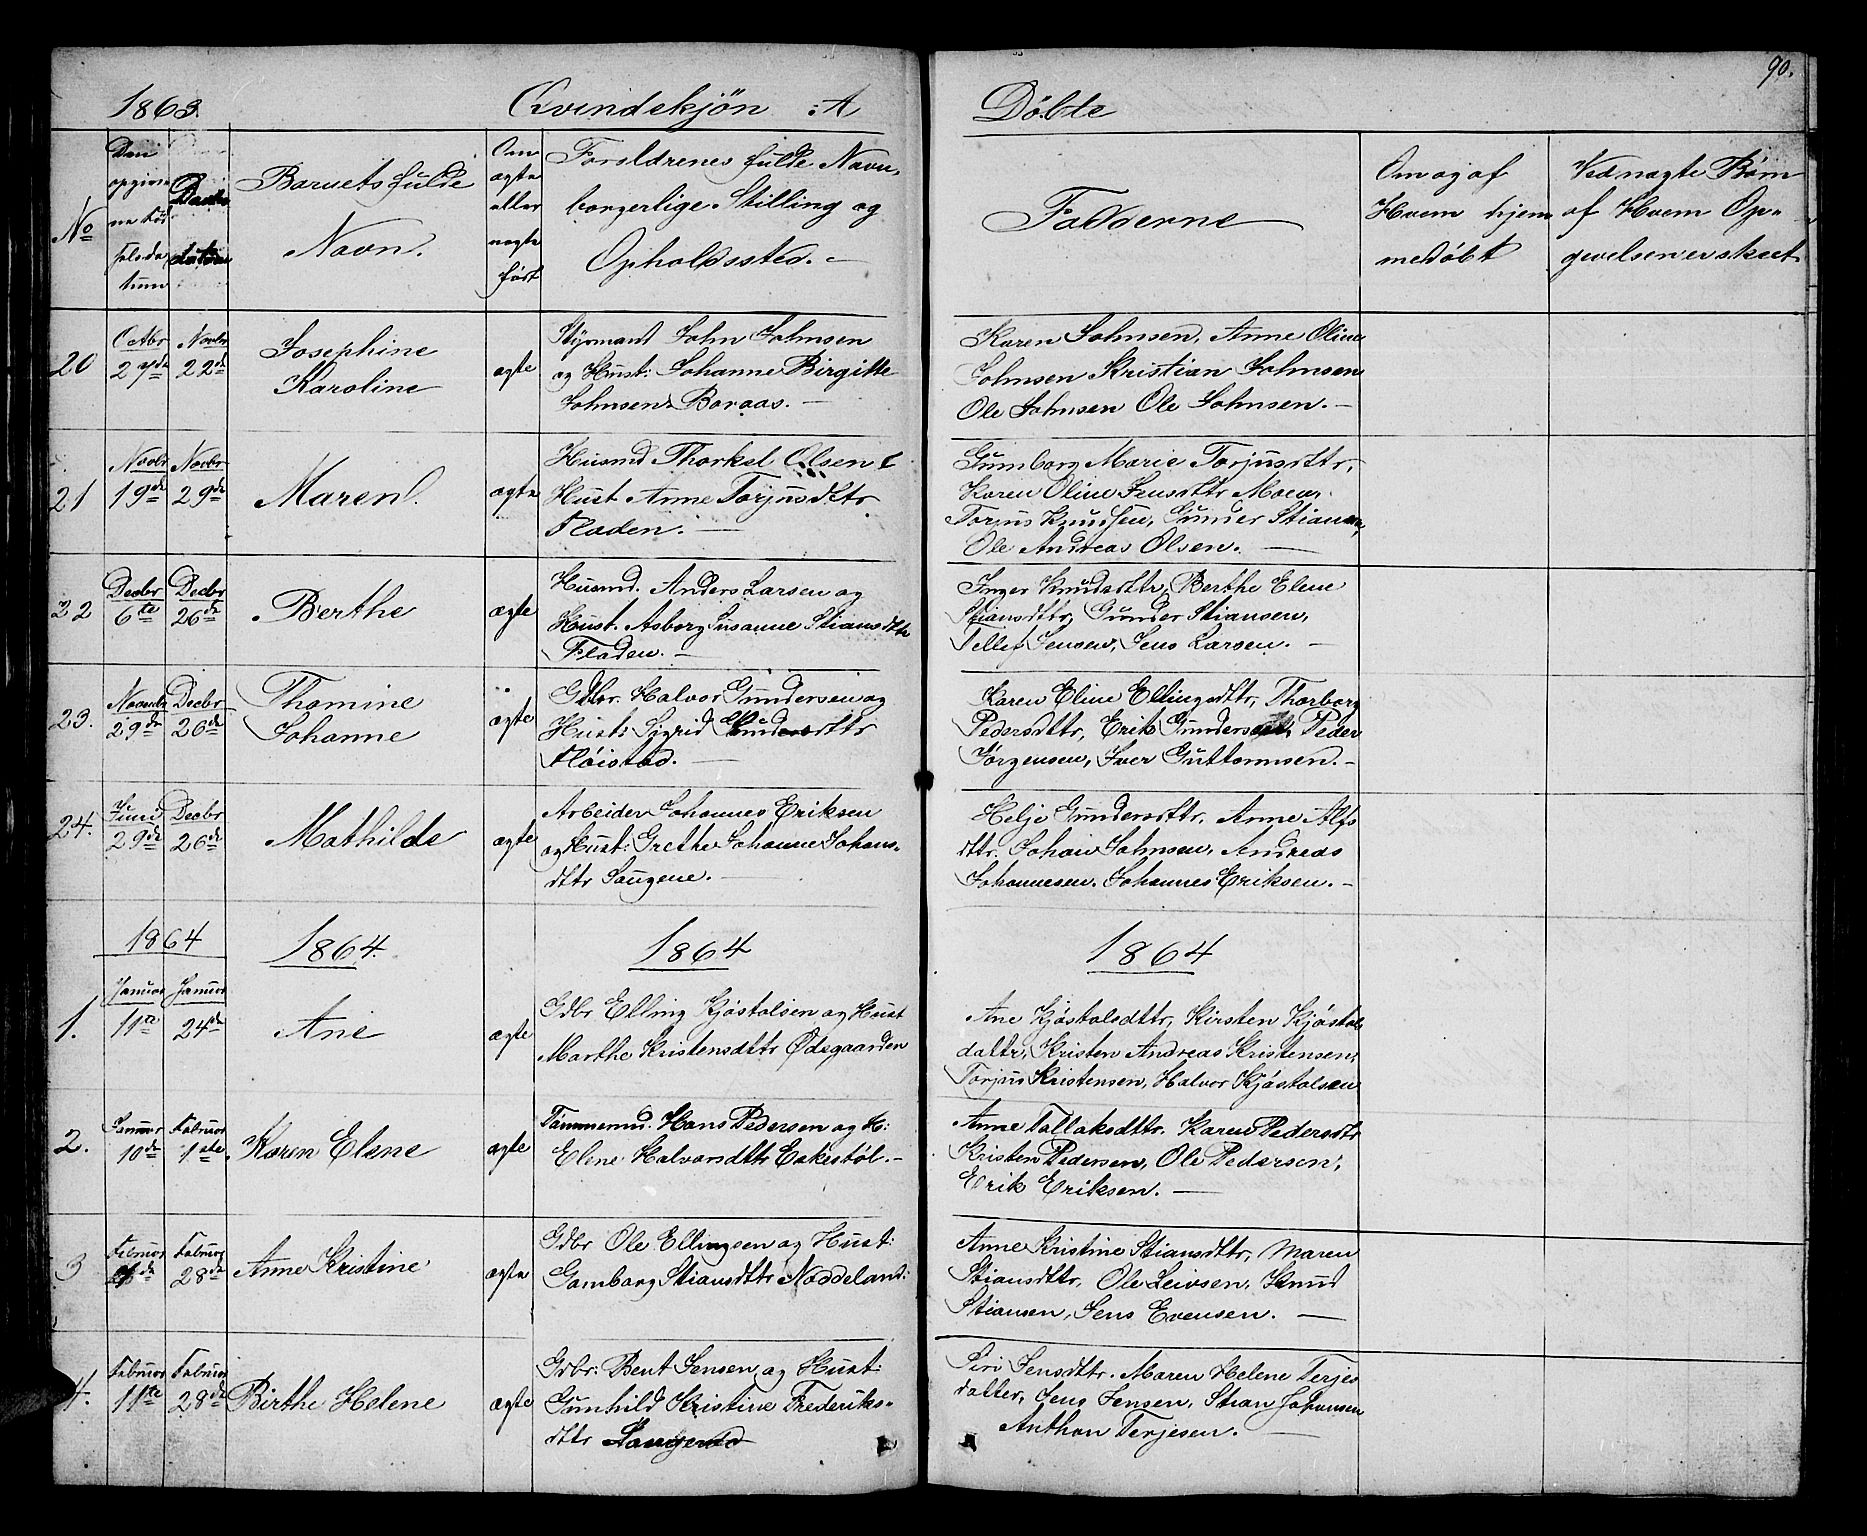 1863. Qvindekjön :A Döbte 90.
No
Den opgivne Födselsdatum
Daabsdatum
Barnets fulde Navn.
Om ægte eller uægte født
Forældrenes fulde Navn, borgerlige Stilling og Opholdssted.
Fadderne
Om og af Hvem hjemmedøbt
Ved uægte Børn af Hvem Opgivelsen er skeet
20 Octbr 27de Novbr 22de Josephine Karoline ægte
Styrmand John Johnsen
og Hust: Johanne Birgitte
Johnsen Boraas. —
Karen Johnsen, Anne Oline
Johnsen Kristian Johnsen
Ole Johnsen Ole Johnsen. —
21 Novbr 19de Novbr 29de Maren. ægte
Husmd Thorkel Olsen &
Hust Anne Torjusdttr
Fladen. —
Gunborg Marie Torjusdttr,
Karen Oline Jensdttr Moen,
Torjus Knudsen, Gunder Stiansen,
Ole Andreas Olsen. —
22 Decbr 6te Decbr 26de Berthe ægte
Husmd. Anders Larsen og
Hust. Asborg Susanne Stiansdttr
Fladen. —
Inger Knudsdttr, Berthe Elene
Stiansdttr, Gunder Stiansen,
Tellef Jensen, Jens Larsen. —
23. Novembr 29de Decbr 26de Thomine Johanne ægte
Gdbr. Halvor Gundersen og
Hust: Sigrid dttr
Flöistad. —
Karen Eline Ellingsdttr, Thorborg
Pedersdttr, Erik Gundersen, Peder
Jørgensen, Iver Guttormsen. —
24. Juni 29de Decbr 26de Mathilde ægte
Arbeider Johannes Eriksen
og Hust: Grethe Johanne Johans-
dttr Saugene. —
Helje Gundersdttr, Anne Alfs
dttr. Johan Johnsen, Andreas
Johannesen. Johannes Eriksen. —
1864 1864. 1864 1864
1. Januar 11te Januar 24de Ane ægte
Gdbr Elling Kjöstolsen og Hust
Marthe Kristensdttr Ødegaarden
Ane Kjöstolsdttr, Kirsten Kjöstols
dattr, Kristen Andreas Kristensen,
Torjus Kristensen, Halvor Kjöstolsen
2. Januar 10de Februar 1ste Karen Elene ægte
Tömmermd. Hans Pedersen og H:
Elene Halvorsdttr Eekestöl. —
Anne Tallaksdttr. Karen Pedersdtr
Kristen Pedersen, Ole Pedersen,
Erik Eriksen. —
3 Februar Februar 28de Anne Kristine ægte
Gdbr Ole Ellingsen og Hust:
Gamborg Stiansdttr Noddeland:
Anne Kristine Stiansdttr, Maren
Stiansdttr, Ole Leivsen, Knud
Stiansen, Jens Evensen. —
4. Februar 11te Februar 28de Birthe Helene ægte
Gdbr: Bent Jensen og Hust:
Gunhild Kristine Frederiks-
dttr
Siri Jensdttr. Maren Helene Terjes
datter, Jens Jensen, Stian Johansen
Anthon Terjesen. —